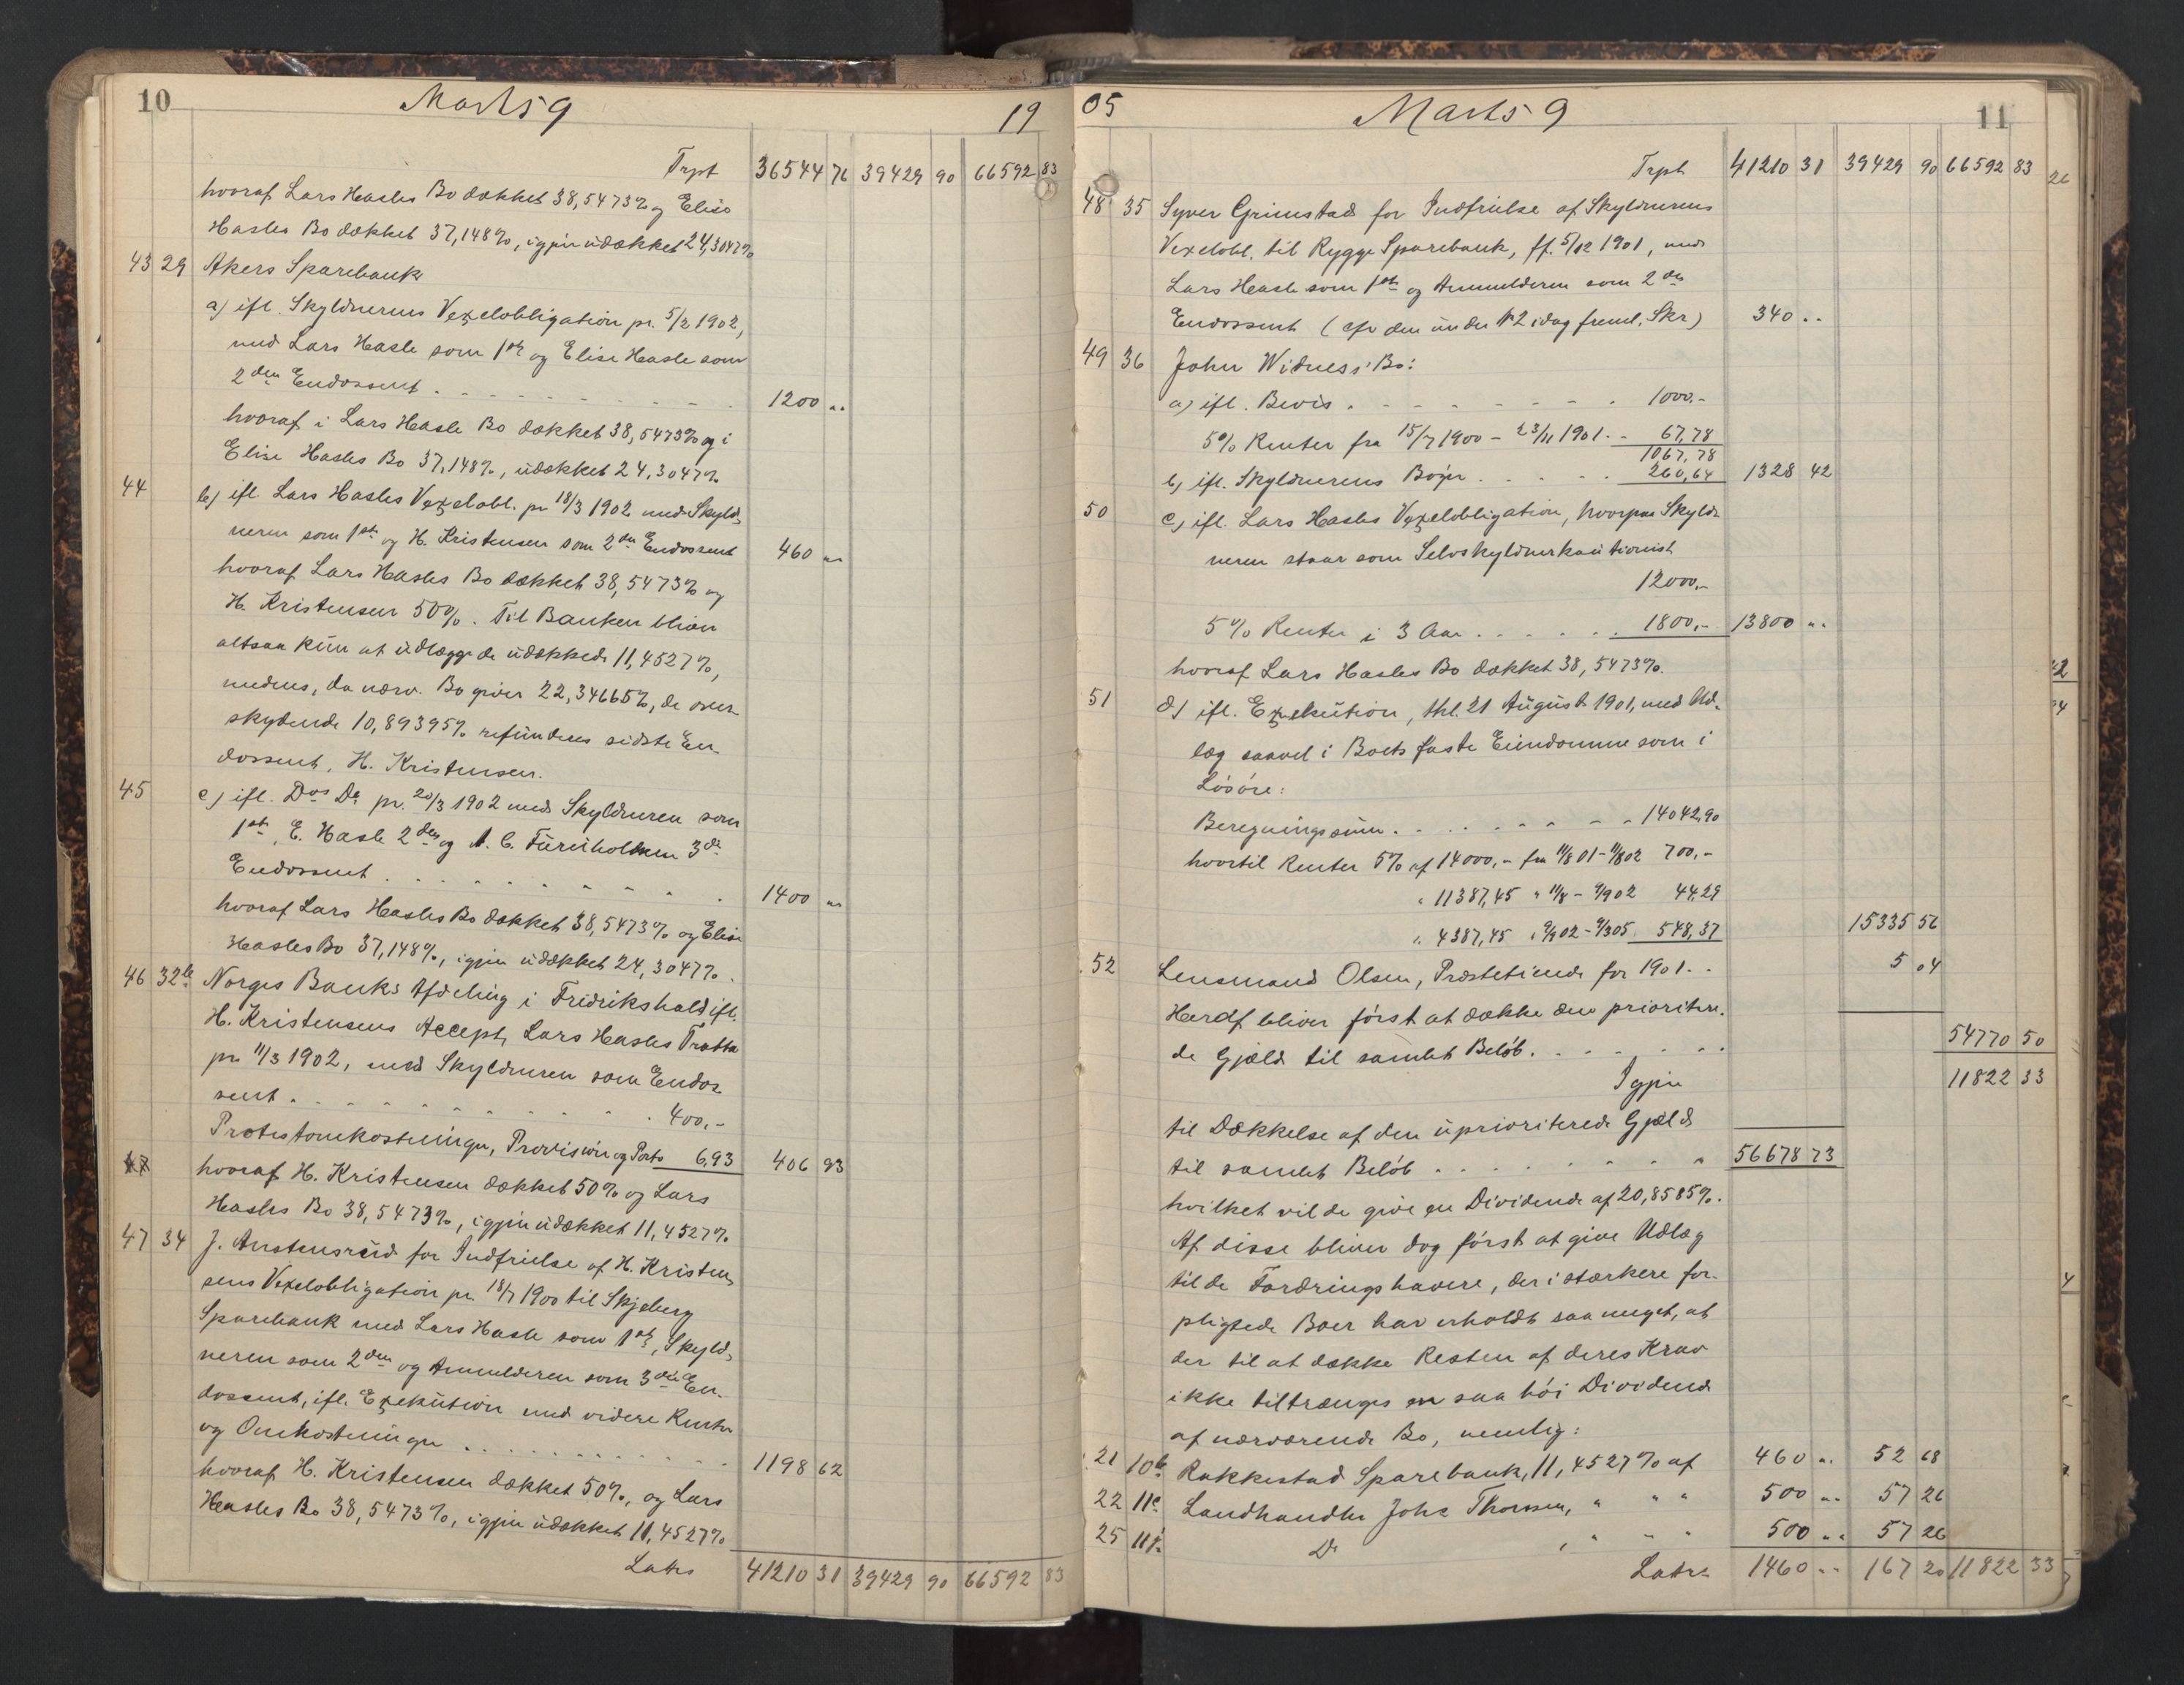 10 Marts 9 19
Trpt 36544 76 39429 90 66592 83
hvoraf Lars Hasles Bo dækket 38,5473% og Elise
Hasles Bo dækket 37,148%, igjen udækket 24,3047%
43 29 Akers Sparebank
a) ifl. Skyldnerens Vexelobligation pr. 5/2 1902,
med Lars Hasle som 1ste og Elise Hasle som
2den Endossent . . . . 1200 "
hvoraf i Lars Hasle Bo dækket 38,5473% og i
Elise Hasles Bo 37,148%, udækket 24,3047%
44 b) ifl. Lars Hasles Vexelobl. pr 18/3 1902 med Skyld-
neren som 1ste og H. Kristensen som 2den Endossent 460 "
hvoraf Lars Hasles Bo dækket 38,5473% og
H. Kristensen 50%. Til Banken bliver
altsaa kun at udlægge de udækkede 11,4527%,
medens, da nærv. Bo giver 22,34665%, de over-
skydende 10,89395% refunderes sidste En-
dossent, H. Kristensen.
45 c) ifl. Dos Do pr. 20/3 1902 med Skyldneren som
1ste, E. Hasle 2den og A. C. Furuholmen 3die
Endossent . . . . 1400 "
hvoraf Lars Hasles Bo dækket 38,5473% og Elise
Hasles Bo 37,148%, igjen udækket 24,3047%.
46 32b Norges Banks Afdeling i Fredrikshald ifl.
H. Kristensens Accept, Lars Hasles Tratta
pr 11/3 1902, med Skyldneren som Endos-
sent . . . . 400,-
Protestomkostninger, Provision og Porto 6,93 406 93
47 hvoraf H. Kristensen dækket 50% og Lars
Hasles Bo 38,5473%, igjen udækket 11,4527%
47 34 J. Anstensrud for Indfrielse af H. Kristen-
sens Vexelobligation pr. 18/7 1900 til Skjeberg
Sparebank med Lars Hasle som 1ste, Skyld-
neren som 2den og Anmelderen som 3die En-
dossent, ifl. Exekution med videre Renter
og Omkostninger . . . . 1198 62
hvoraf H. Kristensen dækket 50%, og Lars
Hasles Bo 38,5473%, igjen udækket 11,4527%
Lates 41210 31 39429 90 66592 83
05 Marts 9 11
Trpt 41210 31 39429 90 66592 83
48 35 Syver Grimstad for Indfrielse af Skyldnerens
Vexelobl. til Rygge Sparebank, ff. 5/12 1901, med
Lars Hasle som 1ste og Anmelderen som 2den
Endossent (cfr den under № 2 idag freml. Skr) 340 "
49 36 John Witness' Bo:
a) ifl. Bevis . . . . 1000.-
5% Renter fra 15/7 1900 - 23/11 1901 . - 67,78
1067,78
b) ifl. Skyldnerens Bøger . . . . 260,64 1328 42
50 c) ifl. Lars Hasles Vexelobligation, hvorpaa Skyld-
neren staar som Selvskyldnerkautionist
12000,-
5% Renter i 3 Aar . . . . 1800,- 13800 "
hvoraf Lars Hasles Bo dækket 38,5473%.
51 d) ifl. Exekution, thl. 21 August 1901, med Ud-
læg saavel i Boets faste Eiendomme som i
Løsøre:
Beregningssum . . . . 14042,90
hvortil Renter 5% af 14000,- fra 11/8 01 - 11/8 02 700,-
" 11387,45 " 11/8 - 9/9 02 44,29
" 4387,45 " 9/9 02 - 9/3 05 548,37 15335 56
52 Lensmand Olsen, Præstetiende for 1901 . . 5 04
Heraf bliver først at dække den prioritere-
de Gjæld til samlet Beløb . . . . 54770 50
Igjen 11822 33
til Dækkelse af den uprioriterede Gjæld
til samlet Beløb . . . . 56678 73
hvilket vilde give en Dividende af 20,8585%.
Af disse bliver dog først at give Udlæg
til de Fordringshavere, der i stærkere for-
pligtede Boer har erholdt saa meget, at
der til at dække Resten af deres Krav
ikke tiltrænges en saa høi Dividende
af nærværende Bo, nemlig:
21 10b Rakkestad Sparebank, 11,4527% af 460 " 52 68
22 11c Landhandler Johs Thorsen, " " " 500 " 57 26
25 11f Do " " " 500 " 57 26
Lates 1460 " 167 20 11822 33